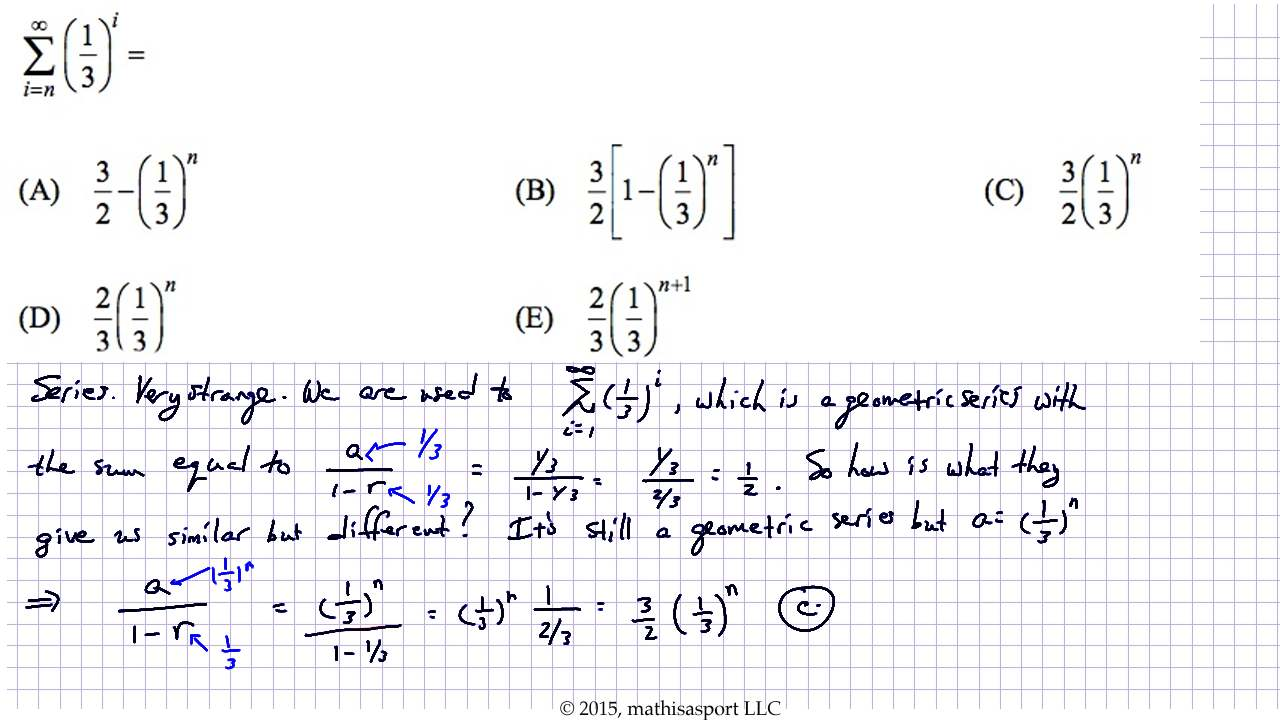 ∞∑i=n (1/3)^i =
(A) 3/2 − (1/3)^n (B) 3/2 [1 − (1/3)^n] (C) 3/2 (1/3)^n
(D) 2/3 (1/3)^n (E) 2/3 (1/3)^(n+1)
Series. Very strange. We are used to ∞∑i=1 (1/3)^i, which is a geometric series with
the sum equal to a ← 1/3 / 1 − r ← 1/3 = 1/3 / 1 − 1/3 = 1/3 / 2/3 = 1/2. So how is what they
give us similar but different? It's still a geometric series but a = (1/3)^n
⇒ a ← (1/3)^n / 1 − r ← 1/3 = (1/3)^n / 1 − 1/3 = (1/3)^n 1 / 2/3 = 3/2 (1/3)^n C.
© 2015, mathisasport LLC